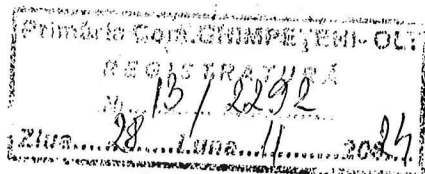 Primăria Com. GHIMPEȚENI-OLT
REGISTRATURĂ
Nr. 13 / 2292
Ziua.... 28 .....Luna... 11 .......2024